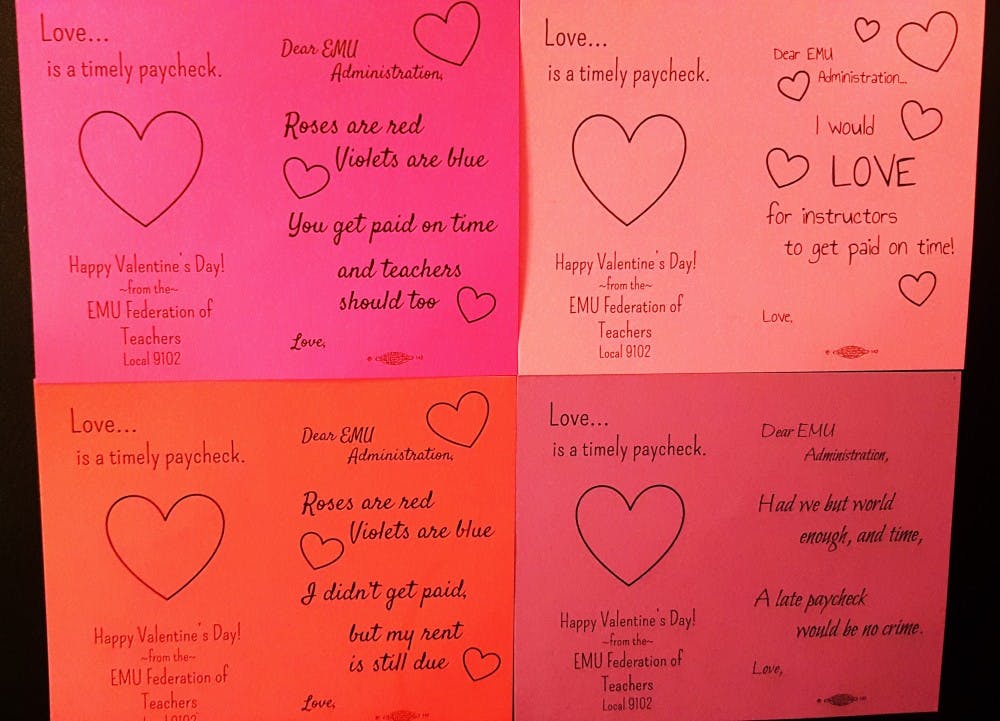 Love...
is a timely paycheck.
Happy Valentine's Day!
~from the~
EMU Federation of
Teachers
Local 9102
Dear EMU
Administration,
Roses are red
Violets are blue
You get paid on time
and teachers
should too
Love,
Love...
is a timely paycheck.
Happy Valentine's Day!
~from the~
EMU Federation of
Teachers
Local 9102
Dear EMU
Administration...
I would
LOVE
for instructors
to get paid on time!
Love,
Love...
is a timely paycheck.
Happy Valentine's Day!
~from the~
EMU Federation of
Teachers
Local 9102
Dear EMU
Administration,
Roses are red
Violets are blue
I didn't get paid,
but my rent
is still due
Love,
Love...
is a timely paycheck.
Happy Valentine's Day!
~from the~
EMU Federation of
Teachers
Local 9102
Dear EMU
Administration,
Had we but world
enough, and time,
A late paycheck
would be no crime.
Love,